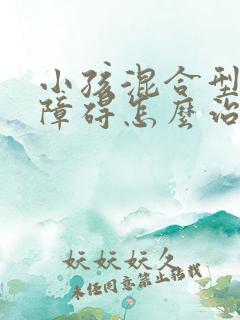 小孩混合型
障碍怎麽治
妖妖妖久
未经同意禁止搭载